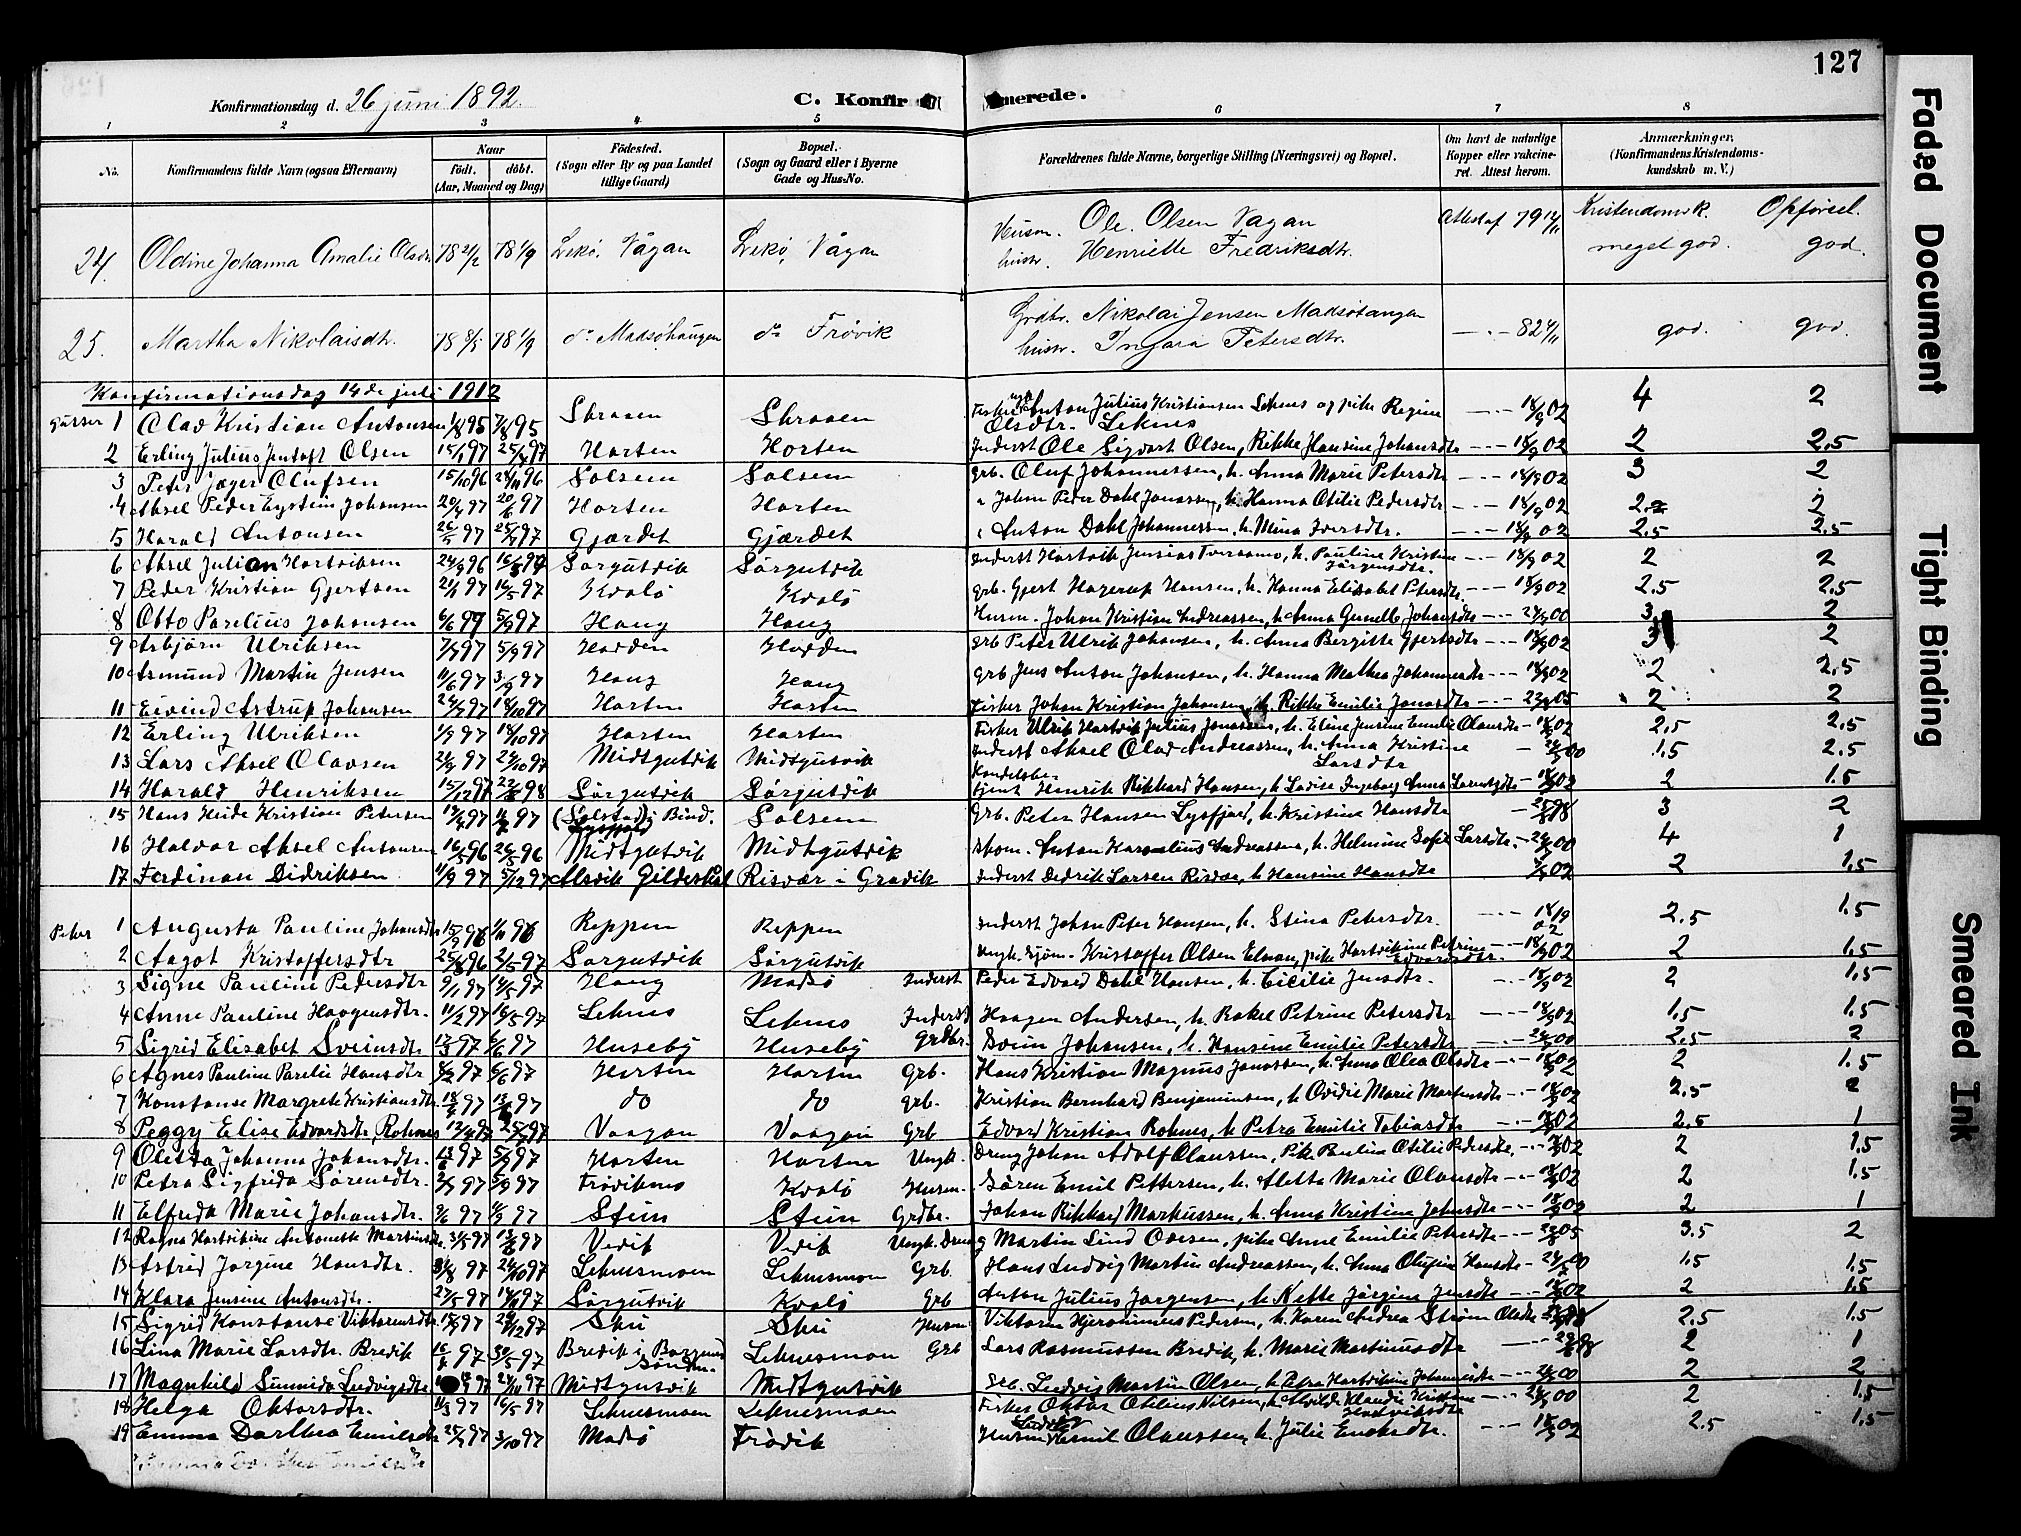 127
Konfirmationsdag d. 26 juni 1892.
C. Konfir
merede.
1 2 3 4 5 6 7 8
No. Konfirmandens fulde Navn (ogsaa Efternavn) Naar født. døbt. (Aar, Maaned og Dag) Fødested. (Sogn eller By og paa Landet tillige Gaard) Bopæl. (Sogn og Gaard eller i Byerne Gade og Hus-No. Forældrenes fulde Navne, borgerlige Stilling (Næringsvei) og Bopæl. Om havt de naturlige Kopper eller vakcineret. Attest herom. Anmærkninger, (Konfirmandens Kristendomskundskab m. V.)
Kristendomsk. Opførsel.
24. Oldine Johanna Amalie Olsdr. 78 21/2 78 1/9 Lekø, Vågan Lekø, Vågan Husm. Ole Olsen Vagan Attest af 79 12/11
hustr. Henriette Fredriksdtr. meget god. god.
25. Martha Nikolaisdtr. 78 8/5 78 1/9 do Madsøhaugen do Frøvik Grdbr. Nikolai Jensen Madsøtangen — 82 4/11 god. god.
hustr. Ingara Petersdtr.
Konfirmationsdag 14de juli 1912
Gutter 1 Olav Kristian Antonsen 1/8 95 7/8 95 Skraaen Skraaen Fisker Anton Julius Kristiansen Leknes og pike Regine 18/9 02 4 2
Olsdtr. Leknes
2 Erling Julius Jentoft Olsen 15/1 97 25/4 97 Horten Horten Inderst Ole Sigvart Olsen, Rikke Hansine Johansdtr 18/9 02 2 2.5
3 Peter Jæger Olufsen 15/10 96 24/11 96 Solsem Solsem Grb. Oluf Johannessen, h. Anna Marie Petersdtr 18/9 02 3 2
4 Aksel Peder Eystein Johansen 20/4 97 20/6 97 Horten Horten " Johan Peder Dahl Jonassen, h. Hanna Otilie Pedersdtr 18/9 02 2 2
5 Harald Antonsen 26/5 97 25/7 97 Gjærdet Gjærdet " Anton Dahl Johannessen, h. Mina Iversdtr. 18/9 02 2.5 2.5
6 Aksel Julian Hartviksen 24/9 96 16/5 97 Sørgutvik Sørgutvik Inderst Hartvik Jensias Tveraamo, h. Pauline Kristine 18/9 02 2 2
Jørgensdtr.
7 Peder Kristian Gjertsen 21/1 97 16/5 97 Kvalø Kvalø Grb. Gjert Hagerup Hansen, h. Hanna Elisabet Petersdtr. 18/9 02 2.5 2.5
8 Otto Parelius Johansen 6/6 97 5/9 97 Haug Haug Husm. Johan Kristian Andreassen, h. Anna Johansdtr 24/9 00 3 2
9 Asbjørn Ulriksen 7/7 97 5/9 97 Hodden Hodden Grb Peter Ulrik Johansen, h. Anna Bergitte Gjertsdtr 18/9 02 3 2
10 Asmund Martin Jensen 11/6 97 3/9 97 Haug Haug Grb Jens Anton Johansen, h. Hanna Mathea Johannesdtr 18/9 02 2 2.5
11 Eivind Astrup Johansen 24/7 97 18/10 97 Horten Horten Fisker Johan Kristian Johansen, h. Rikke Emilie Jonasdtr 05 2 2
12 Erling Ulriksen 1/9 97 18/10 97 Horten Horten Fisker Ulrik Hartvik Julius Jonassen, h. Eline Jensine Emilie Olausdtr 18/9 02 2.5 2.5
13 Lars Aksel Olavsen 21/9 97 24/10 97 Midtgutvik Midtgutvik Inderst Aksel Olav Andreassen, h. Anna Kristine 24/9 00 1.5 2.5
Larsdtr
14 Harald Henriksen 15/12 97 98 Sørgutvik Sørgutvik Handelsbetjent Henrik Rikhard Hansen, h. Lovise Ingeborg Anna 18/9 02 2 1.5
15 Hans Heide Kristian Petersen 97 97 (Solstad i Bind. Solsem Grb. Peter Hansen Lysfjord, h. Kristine Hansdtr 98 3 2
16 Halvar Aksel Antonsen 16/5 96 26/5 96 Midtgutvik Midtgutvik Skom. Anton Karonlius Andreassen, h. Helmine Sofie Larsdtr. 24/9 00 4 1
17 Ferdinan Didriksen 11/9 97 5/12 97 Alsvik Gildeskal Risvær i Gravik Inderst Didrik Larsen Risvær, h. Hansine Hansdtr 02 2 1.5
Piker 1 Augusta Pauline Johansdtr 15/9 96 1/11 96 Reppen Reppen Inderst Johan Peter Hansen, h. Stina Petersdtr. 18/9 02 2.5 1.5
2 Aagot Kristoffersdtr 25/ 96 2/5 97 Sørgutvik Sørgutvik Ungk. Sjøm. Kristoffer Olsen, pike Hartvikine Petrine 18/9 02 2 1.5
Edvardsdtr.
3 Signe Pauline Pedersdtr 9/1 97 16/5 97 Haug Madsø Inderst Peder Edvard Dahl Hansen, h. Cicilie Jensdtr. 18/9 02 2 1.5
4 Anne Pauline Haagensdtr. 11/2 97 16/5 97 Leknes Leknes Inderst Haagen Andersen, h. Rakel Petrine Petersdtr 18/9 02 1.5 1.5
5 Sigrid Elisabet Sveinsdtr 97 97 Huseby Huseby Grdbr. Svein Johansen, h. Hansine Emilie Petersdtr 24/9 00 2.5 2
6 Agnes Pauline Parelie Hansdtr 97 97 Horten Horten Grb. Hans Kristian Magnus Jonassen, h. Anna Olea Olsdtr 18/9 02 2 1.5
7 Konstanse Margrete Kristiansdtr. 97 97 do do Grb. Kristian Bernhard Benjaminsen, h. Ovidie Marie Martensdtr 18/9 02 2.5 2
8 Peggy Elise Edvardsdtr Rohnes 97 97 Vaagan Vaagan Grb Edvard Kristian Rohnes, h. Petra Emilie Tobiasdtr 02 2.5 1
9 Oletta Johanna Johansdtr. 97 97 Horten Horten Ungk. Dreng Johan Adolf Olaussen, Pike Paulina Otilie Pedersdtr, 02 2 1.5
10 Petra Sigfrida Sørensdtr. 97 97 Frøviknes Kvalø Husm. Søren Emil Pettersen, h. Aletta Marie Olausdtr 18/9 02 2 1.5
11 Elfreda Marie Johansdtr. 97 97 Stein Stein Grdbr. Johan Rikhard Markussen, h. Anna Kristine Johnsdtr 18/9 02 2 1
12 Ragna Hartvikine Antonette Martinsdtr. 97 97 Vedik Vedik Ungk. Dreng Martin Lind Ovesen, pike Anne Emilie Petersdtr 05 3.5 2
13 Astrid Jørgine Hansdtr. 97 24/10 97 Leknesmoen Leknesmoen Grb. Hans Ludvig Martin Andreassen, h. Anna Olufine Hansdtr 24/9 00 1.5 1.5
14 Klara Jensine Antonsdtr. 27/5 97 97 Sørgutvik Kvalø Grb Anton Julius Jørgensen, h. Kette Jørgine Jensdtr 18/9 02 2 1.5
15 Sigrid Konstanse Viktorensdtr. 97 97 Ski Ski Husm Viktorin Hjeronimus Pedersen, h. Karen Andrea Strøm Olsdtr 98 2.5 1.5
16 Lina Marie Larsdtr. Bredik 97 97 Bredik i Leknesmoen Grb Lars Rasmussen Bredik, h. Marie Martinusdtr 98 2 1
17 Magnhild Sunnida Ludvigsdtr 97 97 Midtgutvik Midtgutvik Grb. Ludvig Martin Olsen, h. Petra Hartvikine Johannesdtr 24/9 00 2 2
18 Helga Oktorsdtr. 11/3 97 16/5 97 Leknesmoen Leknesmoen Fisker Oktor Otelius Nilsen, h. Alvilde Klaudie Kristine 24/9 00 2 1.5
Hartviksdtr
19 Emma Dorthea Emilsdtr 97 3/10 97 Madsø Frøvik Husm. Emil Olaussen, h. Julie Eneksdtr. 18/9 02 2.5 1.5
Faded Document
Tight Binding
Smeared Ink